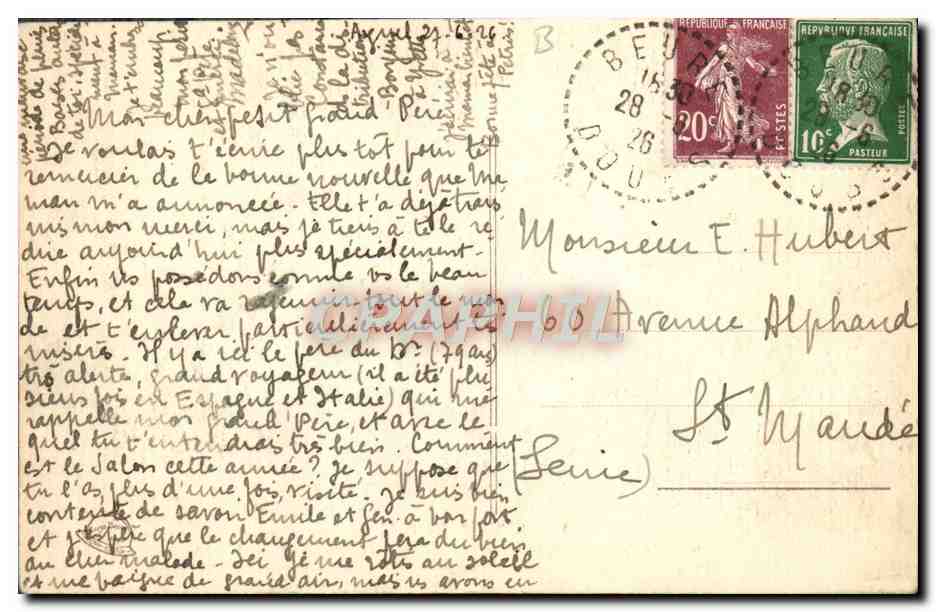 Ayruel 27-6-26
Mon cher petit grand Père
Je voulais t'écrire plus tôt pour te
remercier de la bonne nouvelle que Ma
man m'a annoncée. Elle t'a déjà trans
mis mon merci, mais je tiens à te le re
dire aujourd'hui plus spécialement.
Enfin ns possédons comme vs le beau
temps, et cela va rajeunir tout le mon
de et t'enlever particulièrement tes
misères. Il y a ici le père du Dr (79 ans)
très alerte, grand voyageur (il a été plu
sieurs fois en Espagne et Italie) qui me
rappelle mon grand Père, et avec le
quel tu t'entendrais très bien. Comment
est le Salon cette année? Je suppose que
tu l'as, plus d'une fois, visité. Je suis bien
contente de savoir Emile et Gen. à
et j'espère que le changement fera du bien
au cher malade. Ici je me rôtis au soleil
et me baigne de grand air, mais ns avons eu
Bonne fête
Pétris!
B
REPUBLIQUE FRANÇAISE
20c
POSTES
REPUBLIQUE FRANÇAISE
10c
POSTES
PASTEUR
BEURE
18 30
28 -6
26
DOUBS
BEURE
18 30
28 -6
26
DOUBS
Monsieur E. Hubert
60 Avenue Alphand
St Mandé
(Seine)
CPAPHIL